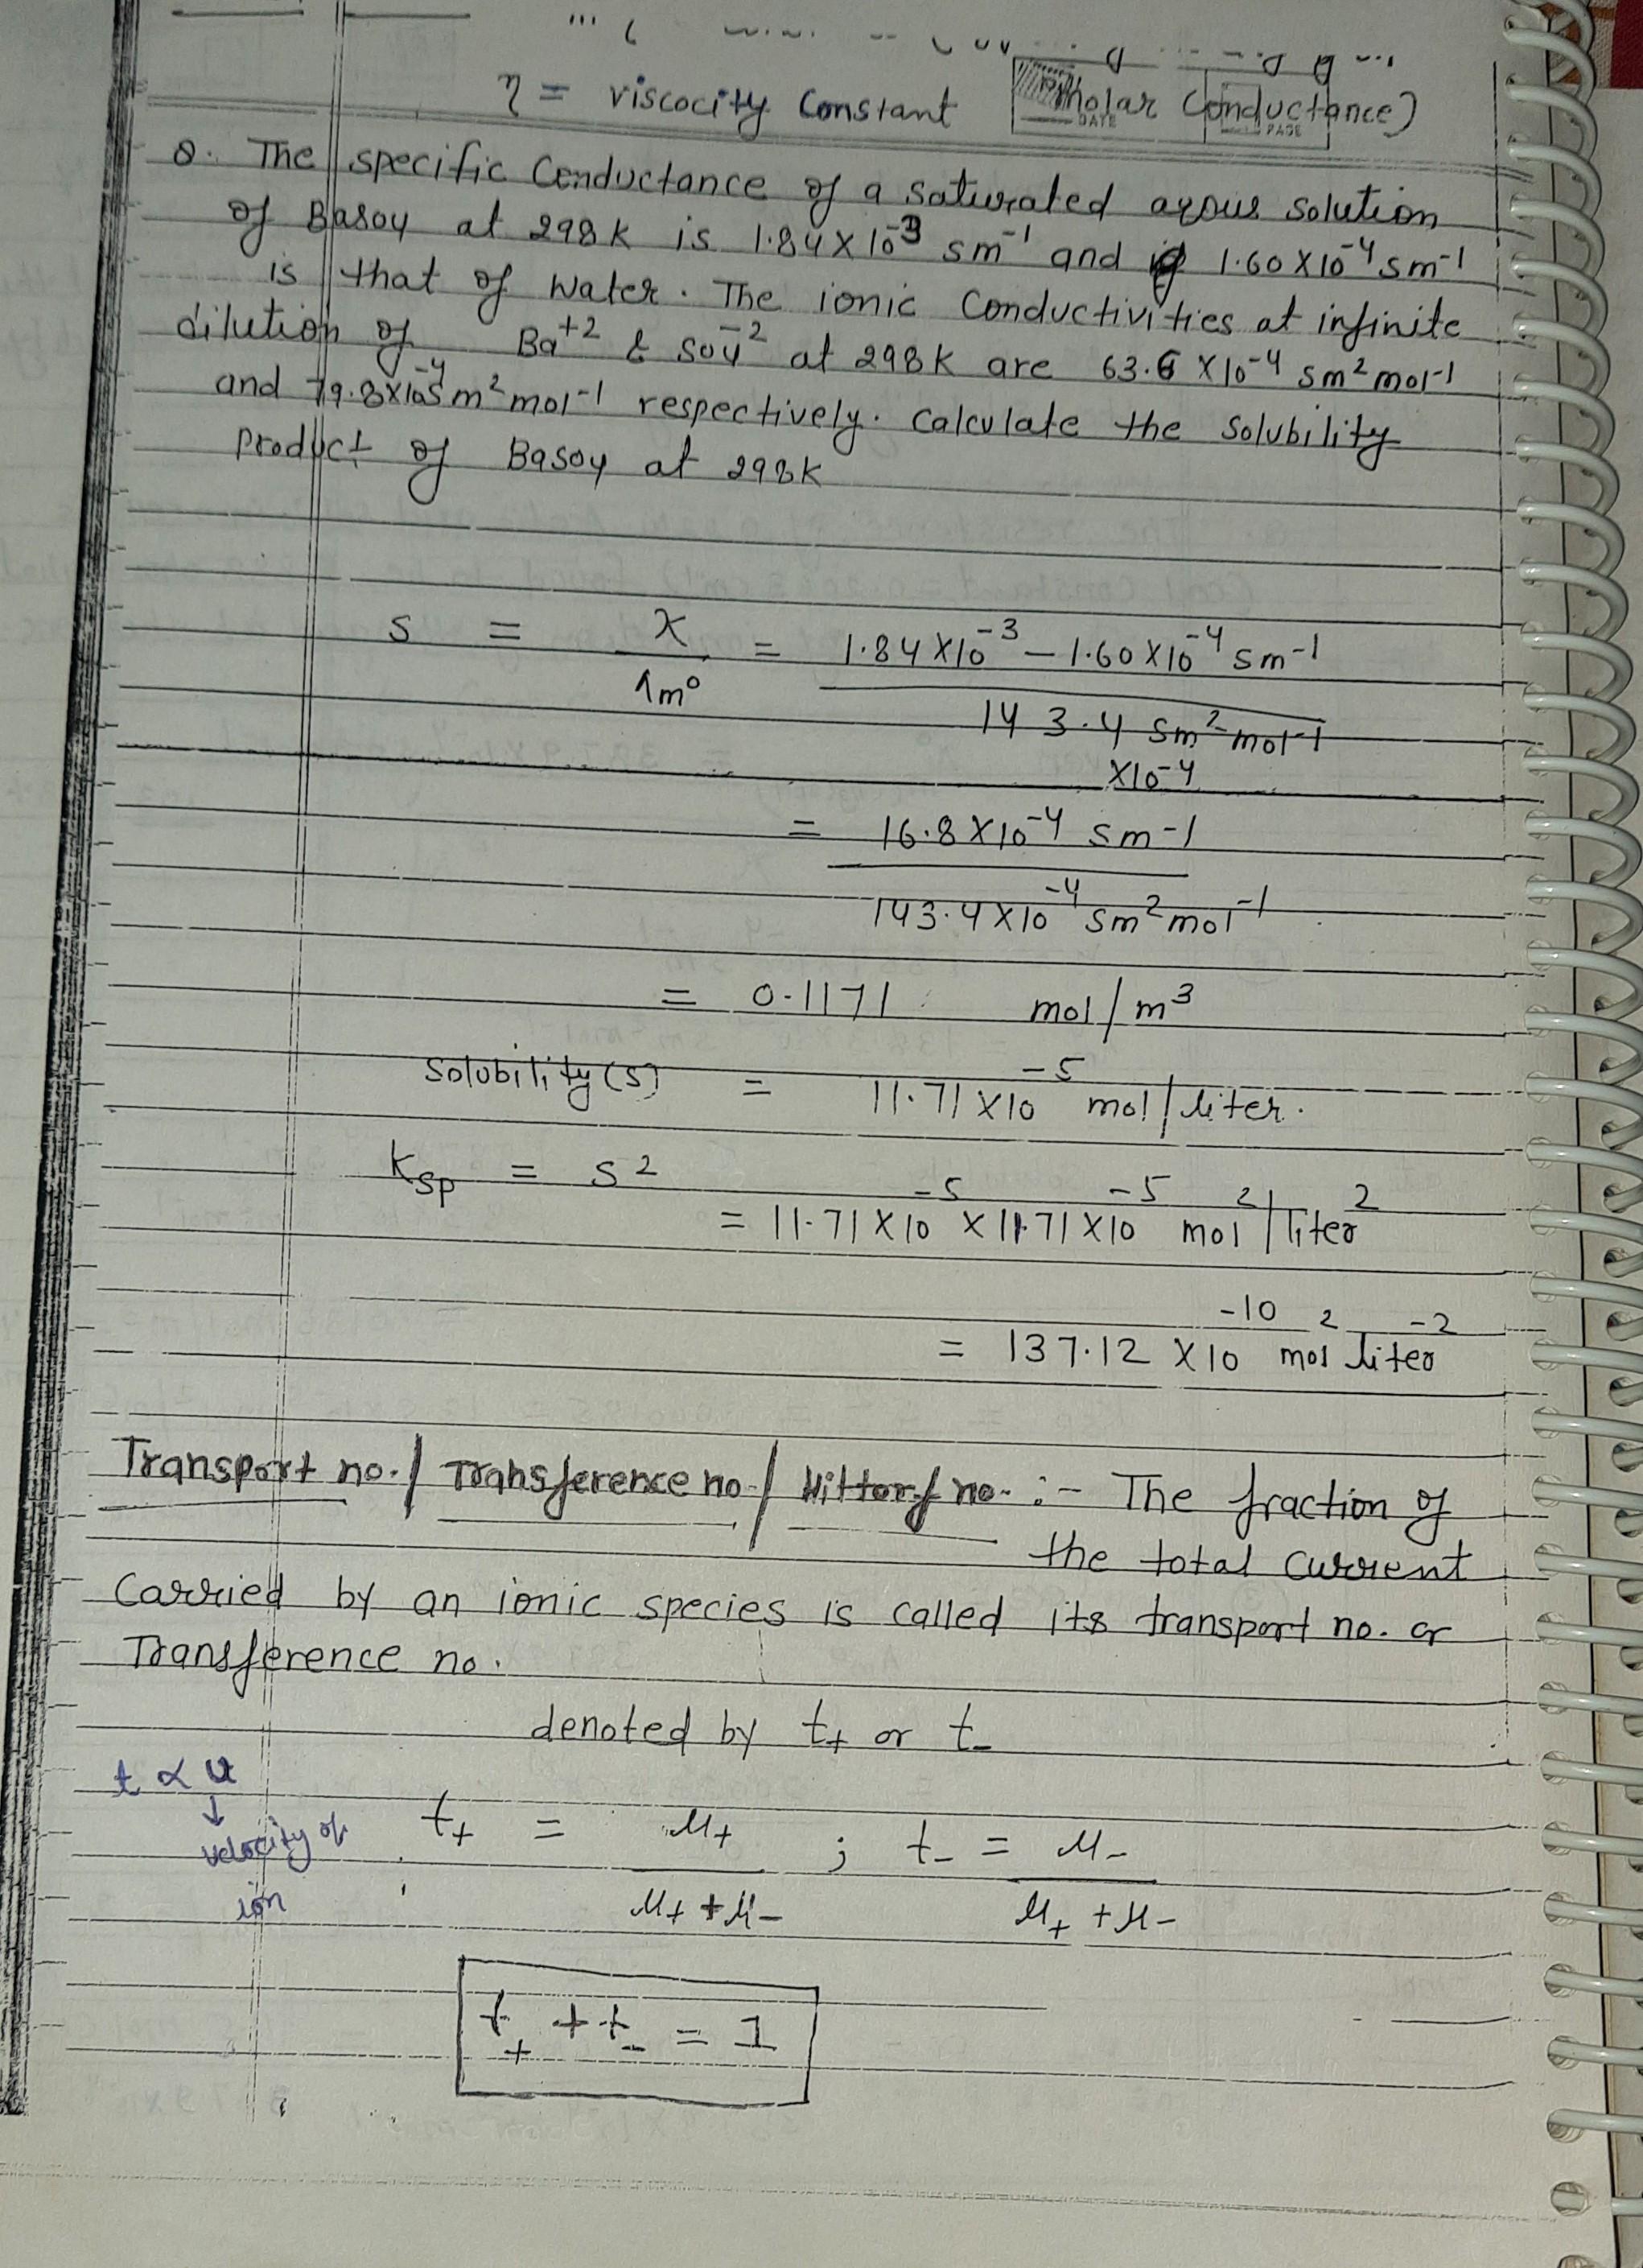 η = viscocity Constant Molar Conductance)
DATE PAGE
Q. The specific Conductance of a saturated aqous solution
of BaSO4 at 298K is 1.84 × 10⁻³ Sm⁻¹ and 1.60 × 10⁻⁴ Sm⁻¹
is that of water. The ionic Conductivities at infinite
dilution of Ba⁺² & SO4⁻² at 298K are 63.6 × 10⁻⁴ Sm² mol⁻¹
and 79.8×10⁻⁴ Sm² mol⁻¹ respectively. Calculate the solubility
Product of BaSO4 at 298K
S = K / Λm° = 1.84 × 10⁻³ – 1.60 × 10⁻⁴ Sm⁻¹
143.4 Sm² mol⁻¹
×10⁻⁴
= 16.8 × 10⁻⁴ Sm⁻¹
143.4 × 10⁻⁴ Sm² mol⁻¹
= 0.1171 mol/m³
Solubility(S) = 11.71 × 10⁻⁵ mol/liter.
Ksp = S²
= 11.71 × 10⁻⁵ × 11.71 × 10⁻⁵ mol²/liter²
= 137.12 × 10⁻¹⁰ mol² liter⁻²
Transport no./ Transference no./ Hittorf no. :- The fraction of
the total current
Carried by an ionic species is called its transport no. or
Transference no.
denoted by t₊ or t₋
t ∝ u
↓
velocity of
ion
t₊ = μ₊ / μ₊ + μ₋ ; t₋ = μ₋ / μ₊ + μ₋
t₊ + t₋ = 1